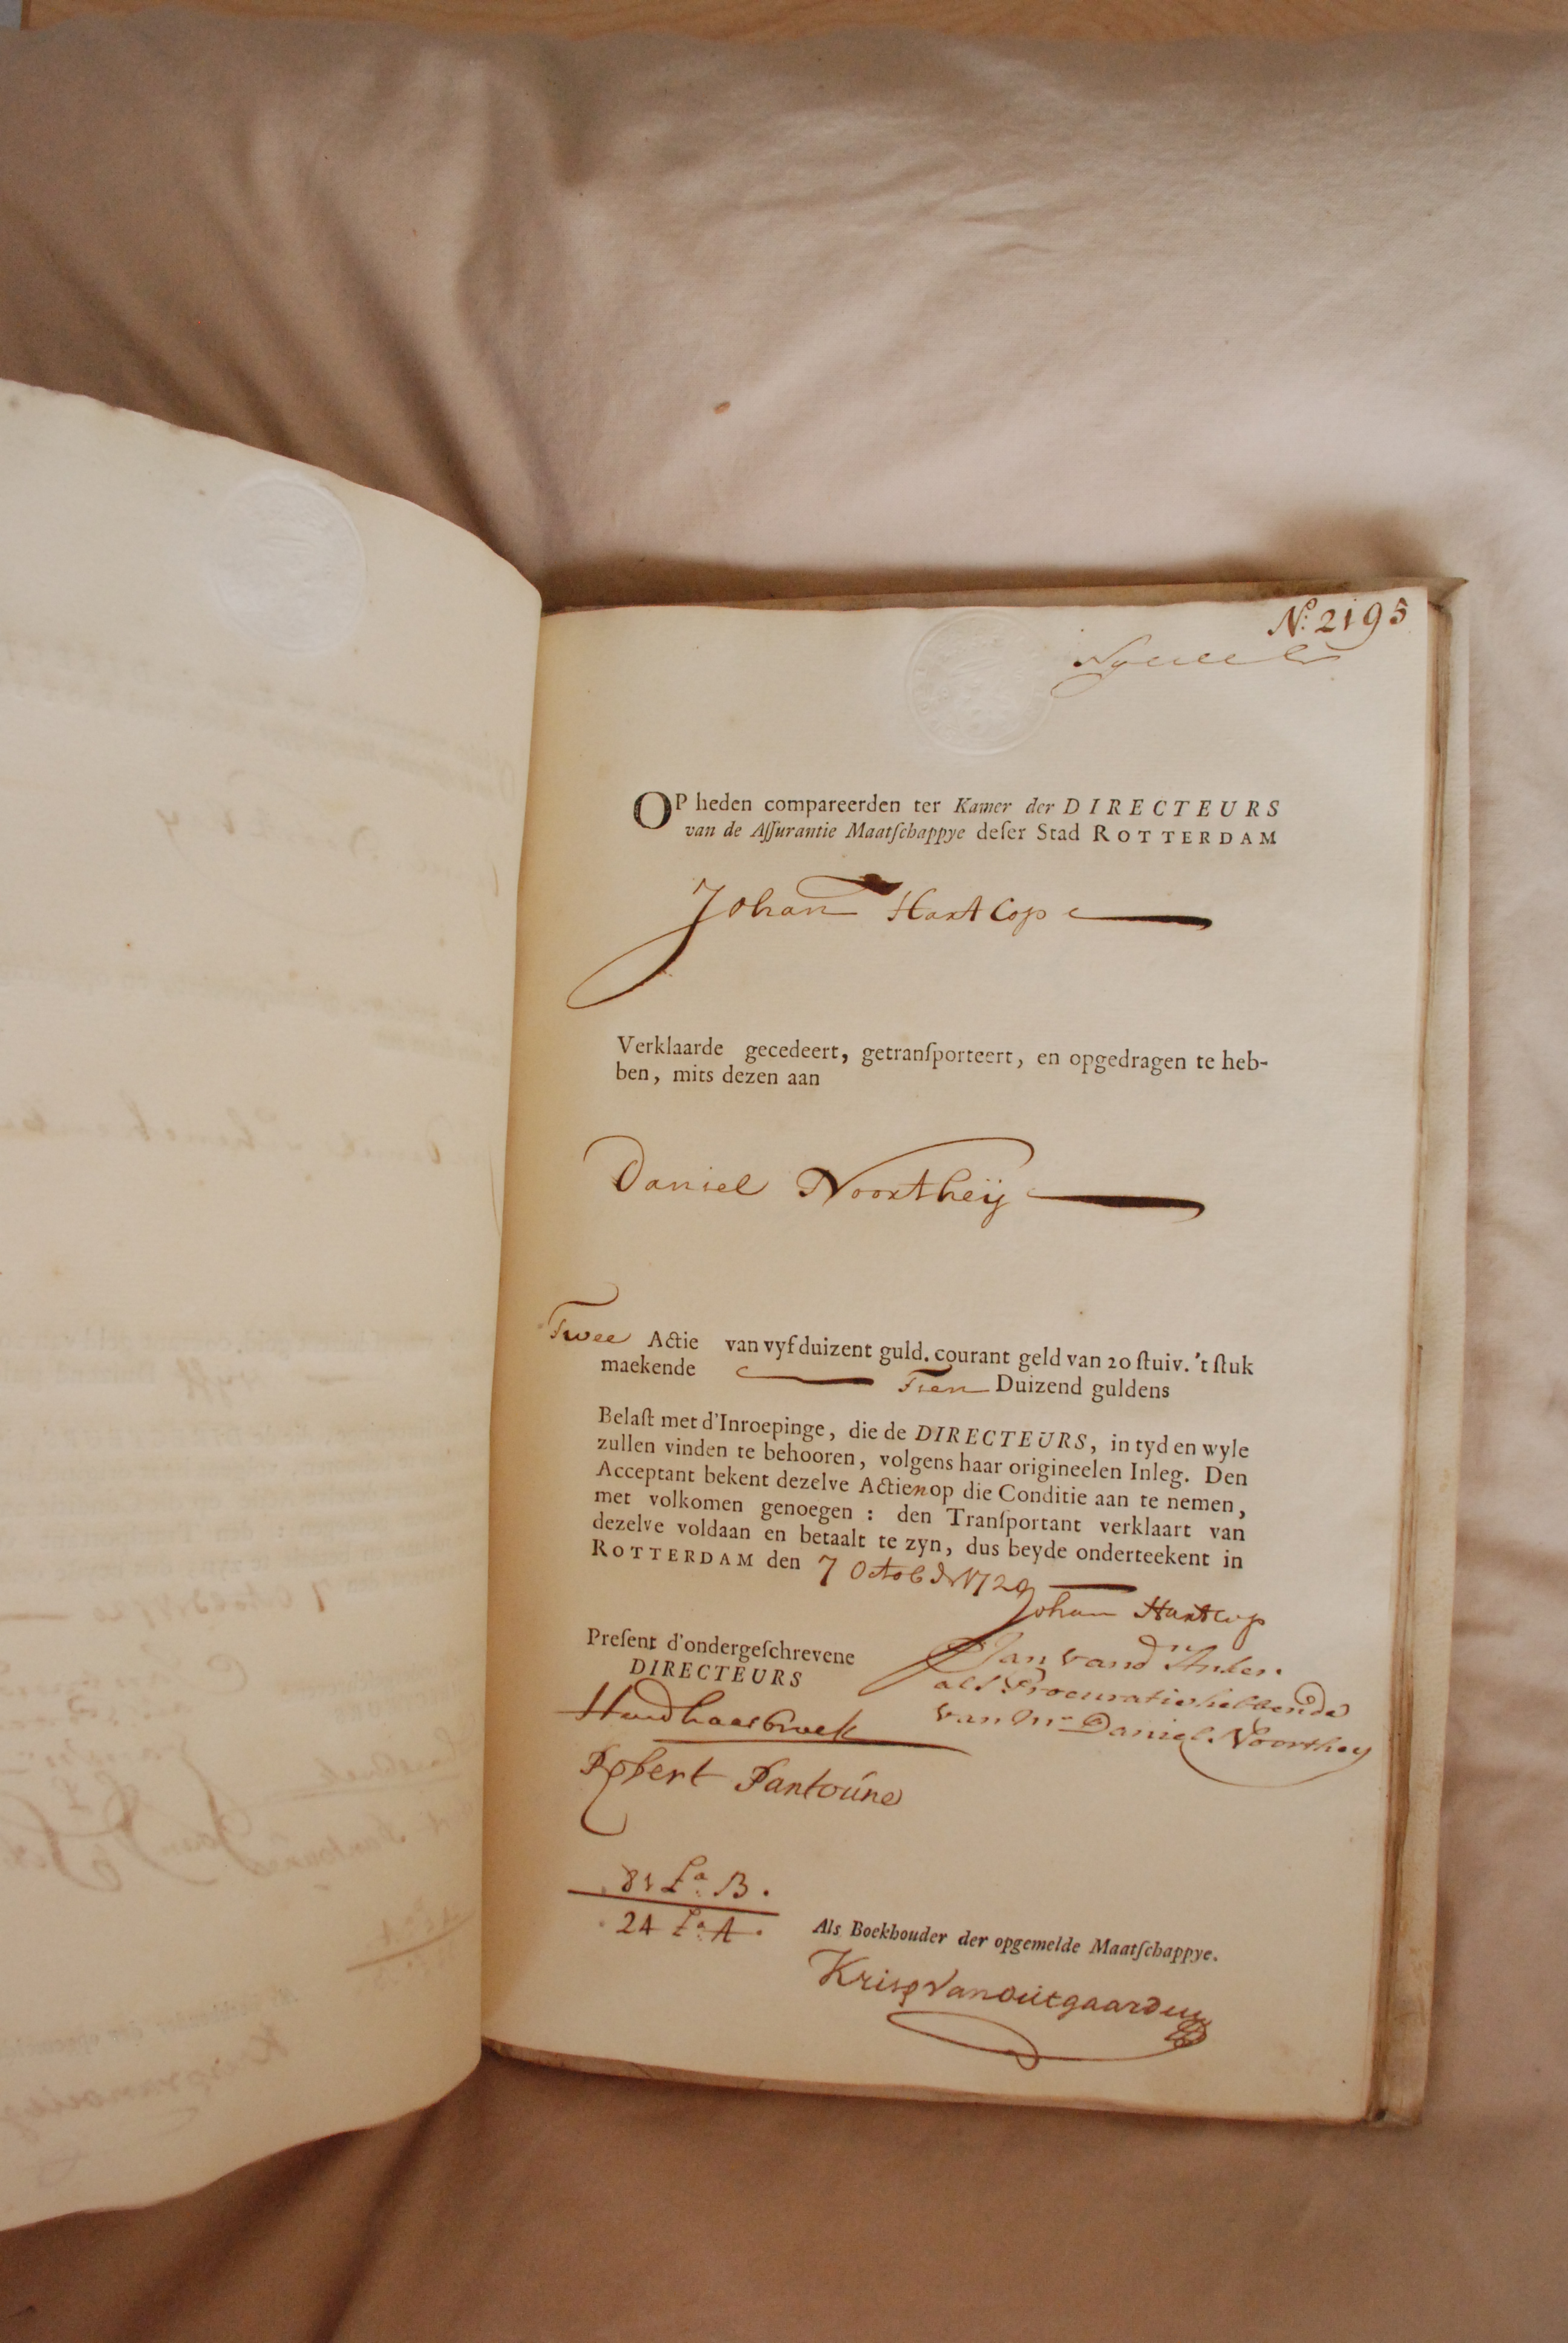 No: 2195
OP heden compareerden ter Kamer der DIRECTEURS
van de Aſſurantie Maatſchappye deſer Stad ROTTERDAM
Johan Hartcop
Verklaarde gecedeert, getranſporteert, en opgedragen te heb-
ben, mits dezen aan
Daniel Noortheÿ
Twee Actie van vyfduizent guld. courant geld van 20 ſtuiv. 't ſtuk
maekende Tien Duizend guldens
Belaſt met d'Inroepinge, die de DIRECTEURS, in tyd en wyle
zullen vinden te behooren, volgens haar origineelen Inleg. Den
Acceptant bekent dezelve Actien op die Conditie aan te nemen,
met volkomen genoegen : den Tranſportant verklaart van
dezelve voldaan en betaalt te zyn, dus beyde onderteekent in
ROTTERDAM den 7 Octob 1720
Johan Hartcop
Preſent d'ondergeſchrevene
DIRECTEURS
Jan vand
als Procuratie hebbende
van Mr Daniel Noorthey
Robert Pantoúne
81 La B.
24 La A.
Als Boekhouder der opgemelde Maatſchappye.
Krisp Van Outgaarden